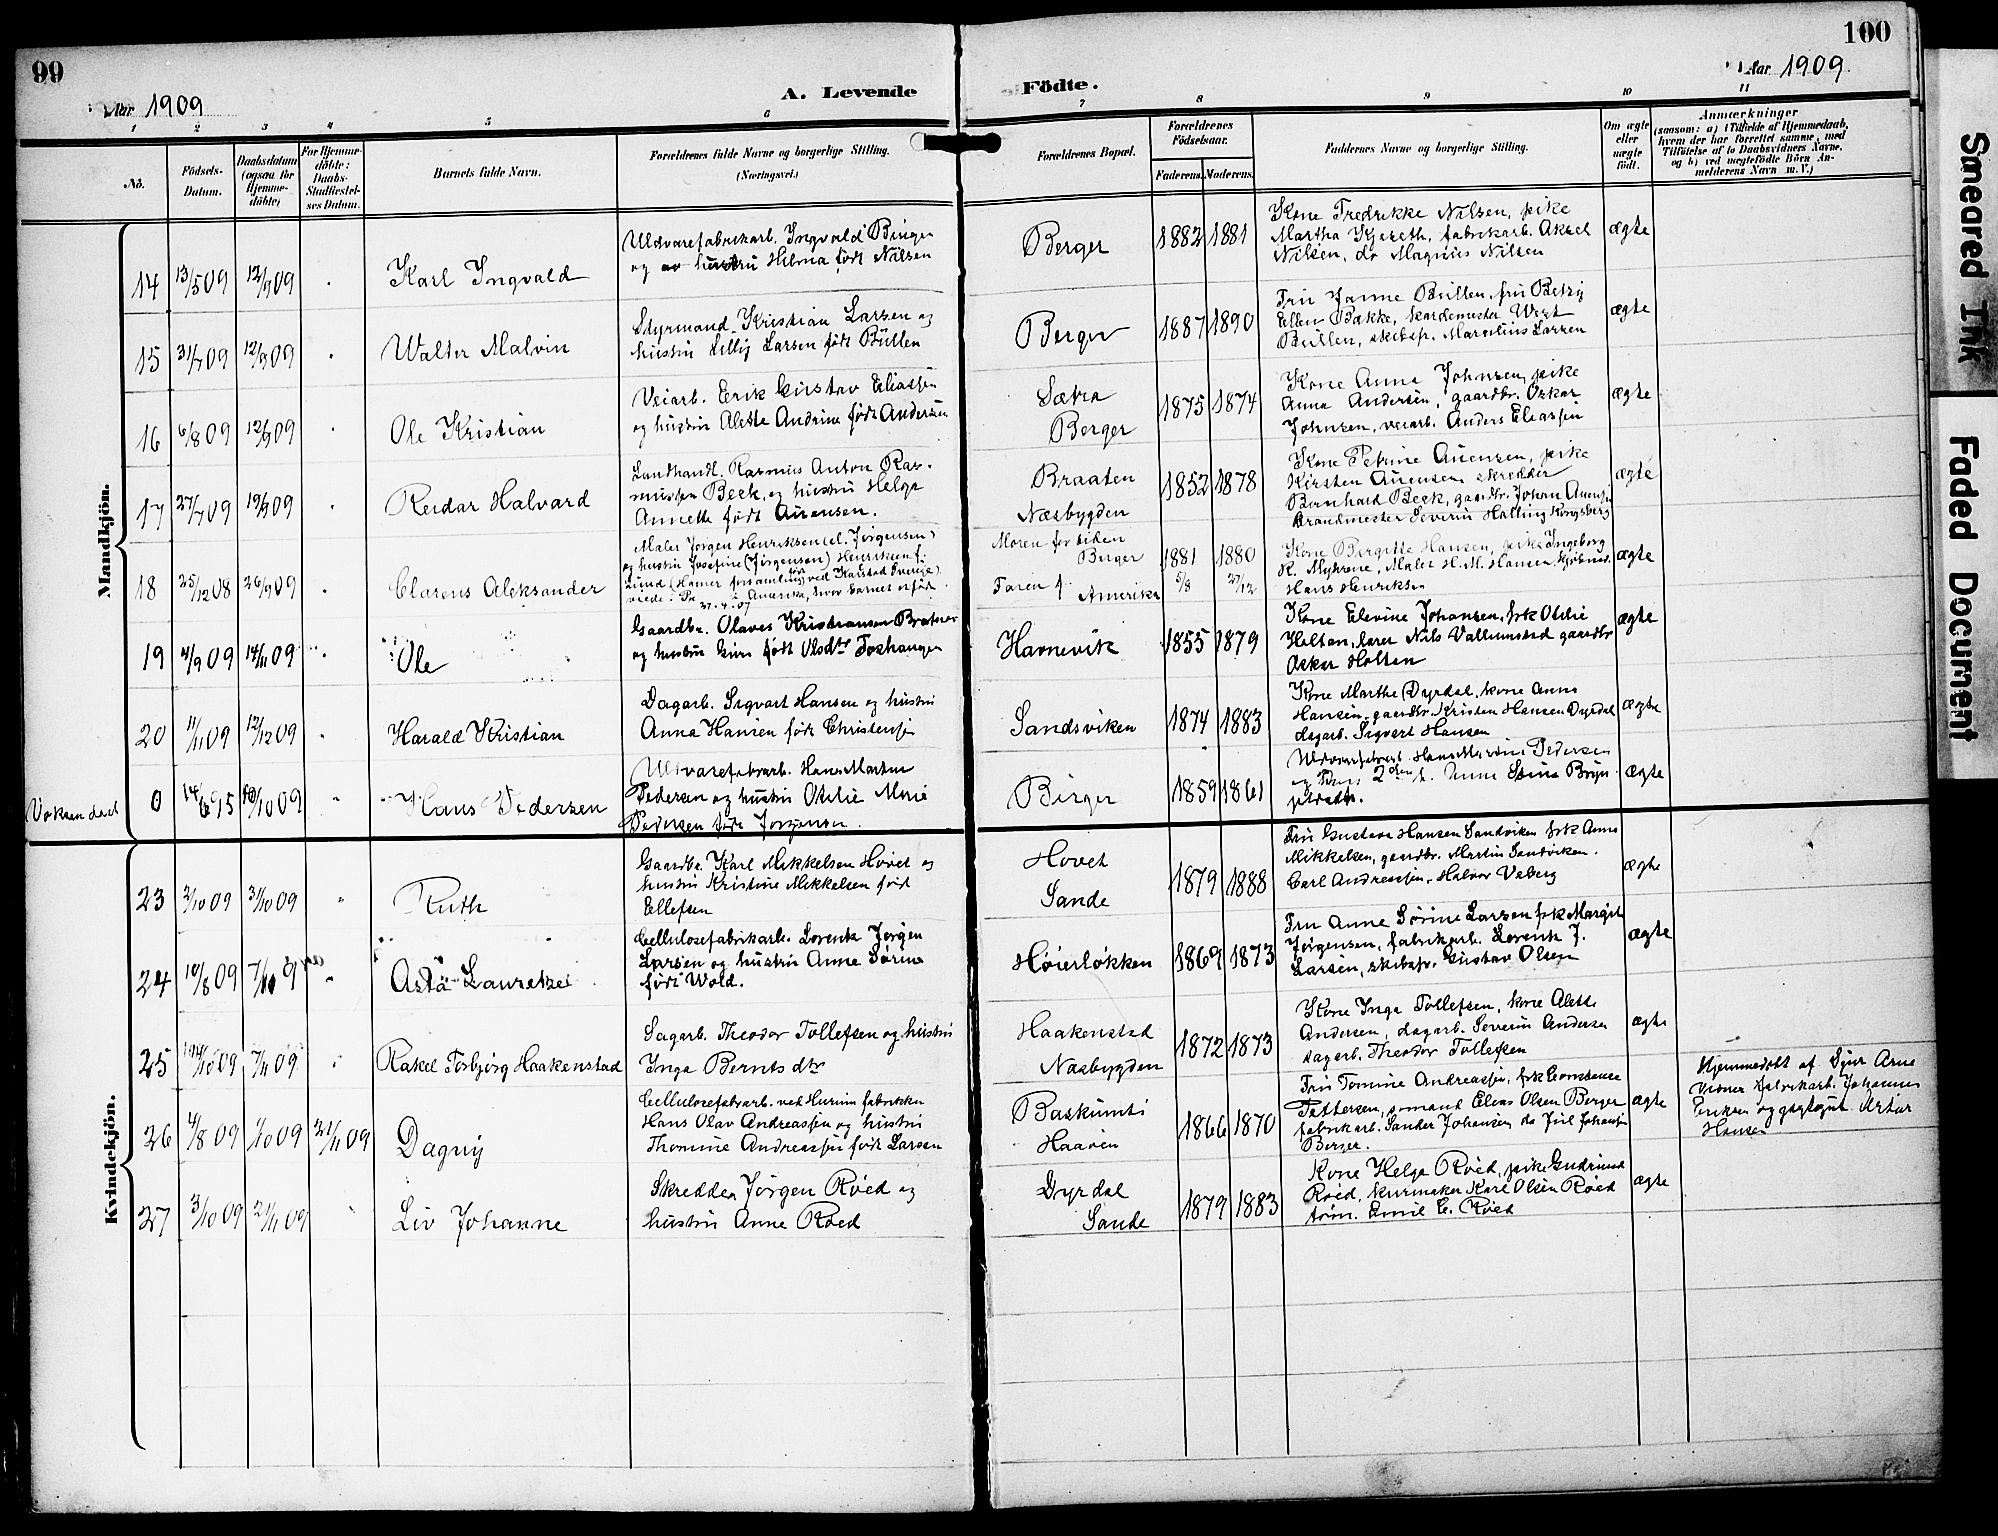 99
Aar 1909
A. Levende
1 2 3 4 5 6
No.
Födsels-
Datum.
Daabsdatum
(ogsaa for
Hjemme-
döbte)
For Hjemme-
döbte:
Daabs-
Stadfæstel-
ses Datum.
Barnets fulde Navn.
Forældrenes fulde Navne og borgerlige Stilling.
(Næringsvei.)
100
Aar 1909.
Födte.
7 8 9 10 11
Forældrenes Bopæl.
Forældrenes
Födselsaar.
Faderens. Moderens.
Faddernes Navne og borgerlige Stilling.
Om ægte
eller
uægte
födt.
Anmærkninger
(saasom: a) i Tilfælde af Hjemmedaab,
hvem der har forrettet samme, med
Tilföielse af to Daabsvidners Navne,
og b) ved uægtefödte Börn An-
melderens Navn m. V.)
Mandkjön.
14 13/5 09 12/9 09
Karl Ingvald
Uldvarefabrikarb. Ingvald Binger
og hustru Hilma født Nilsen
Berger
1882 1881
Kone Fredrikke Nilsen, pike
Martha Kjereth, fabrikarb. Aksel
Nilsen, do Magnus Nilsen
ægte
15 31/7 09 12/9 09
Walter Malvin
Styrmand Kristian Larsen og
hustru Lilly Larsen født Büllen
Berger
1887 1890
Fru Janne Büllen, fru Betzy
Ellen Bakke,
Büllen, skibsfr. Marcelius Larsen
ægte
16 6/8 09 12/9 09
Ole Kristian
Veiarb. Erik Gustav Eliassen
og hustru Alette Andrine født Andersen
Sætra
Berger
1875 1874
Kone Anna Johnsen, pike
Anna Andersen, gaardbr. Oskar
Johnsen, veiarb. Anders Eliassen
ægte
17 27/7 09 19/9 09
Reidar Halvard
Landhandl. Rasmus Anton Ras-
mussen Beck, og hustru Helga
Annette født Auensen.
Braaten
Næsbygden
1852 1878
Kone Petrine Auensen, pike
Kirsten Auensen, skredder
Bernhard Beck, gaardbr. Johan Auensen
Brandmester Severin Halling Kongsberg
ægte
18 25/12 08 26/9 09
Clarens Aleksander
Maler Jørgen Henriksen (el. Jørgensen)
og hustru Josefine (Jørgensen) Henriksen f.
Lund (Hamer forsamling ved Karstad Sverige)
viede i Amerika, hvor barnet er født
27.4.07
Moren for tiden
Berger
Faren i Amerika
1881 1880
5/8 27/12
Kone Birgitte Hansen, pike Ingeborg
K. Myhrene, Maler H. M. Hansen
Hans Henriksen
ægte
19 4/9 09 14/11 09
Ole
Gaardbr. Olaves Kristiansen
og hustru født Olsdtr
Havnevik
1855 1879
Kone Elevine Johansen, frk Otilie
Holtan, lærer Nils gaardbr
Oskar Holten
ægte
20 11/11 09 12/12 09
Harald Kristian
Dagarb. Sigvart Hansen og hustru
Anna Hansen født Christensen
Sandsviken
1874 1883
Kone Marthe Dyrdal, kone Anna
Hansen, gaardbr. Kristen Hansen Dyrdal
dagarb. Sigvart Hansen
ægte
Voksen døbt
0 14/6 95 10/10 09
Hans Pedersen
Uldvarefabrarb. Hans Martin
Pedersen og hustru Otilie Marie
Pedersen født Jørgensen.
Berger
1859 1861
Uldvarefabrarb. Hans Martin Pedersen
og Anna Stina Bryn
ægte
Kvindekjön.
23 2/10 09 31/10 09
Ruth
Gaardbr. Karl Mikkelsen Hovet og
hustru Kristine Mikkelsen født
Ellefsen
Hovet
Sande
1879 1888
Fru Gustava Hansen Sandviken frk Anna
Mikkelsen, gaardbr. Martin Sandviken.
Carl Andreassen, Halvor Veberg
ægte
24 10/8 09 7/11 09
Asta Lauretze
Cellulosefabrikarb. Lorentz Jørgen
Larsen og hustru Anne Sørine
født Wold.
Høierløkken
1869 1873
Fru Anne Sørine Larsen frk Margit
Jørgensen, fabrikarb. Lorentz J.
Larsen, skibsfr. Gustav Olsen
ægte
25 14/10 09 7/11 09
Rakel Torbjørg Haakenstad
Sagarb. Theodor Tollefsen og hustru
Inga Berntsdtr
Haakenstad
Næsbygden
1872 1873
Kone Inga Tollefsen, kone Alette
Andersen, dagarb. Severin Andersen
dagarb. Theodor Tollefsen
ægte
26 4/8 09 1/10 09 21/11 09
Dagny
Cellulosefabrarb. ved Hurum fabrikker
Hans Olav Andreassen og hustru
Thomine Andreassen født Larsen
Haaøen
1866 1870
Fru Tomine Andreassen, frk Constance
Pettersen, sømand Elias Olsen Berger
fabrikarb. Sander Johansen do Juel Johansen
Berger.
ægte
Hjemmedøbt af Djur Arne
fabrikarb. Johannes
Eriksen og Artur
Hansen
27 3/10 09 21/11 09
Liv Johanne
Skredder Jørgen Røed og
hustru Anne Røed
Dyrdal
Sande
1879 1883
Kone Helga Røed, pike Gudrund
Røed, kurmaker Karl Olsen Røed
tøm. Emil C. Røed
ægte
Smeared Ink
Faded Document